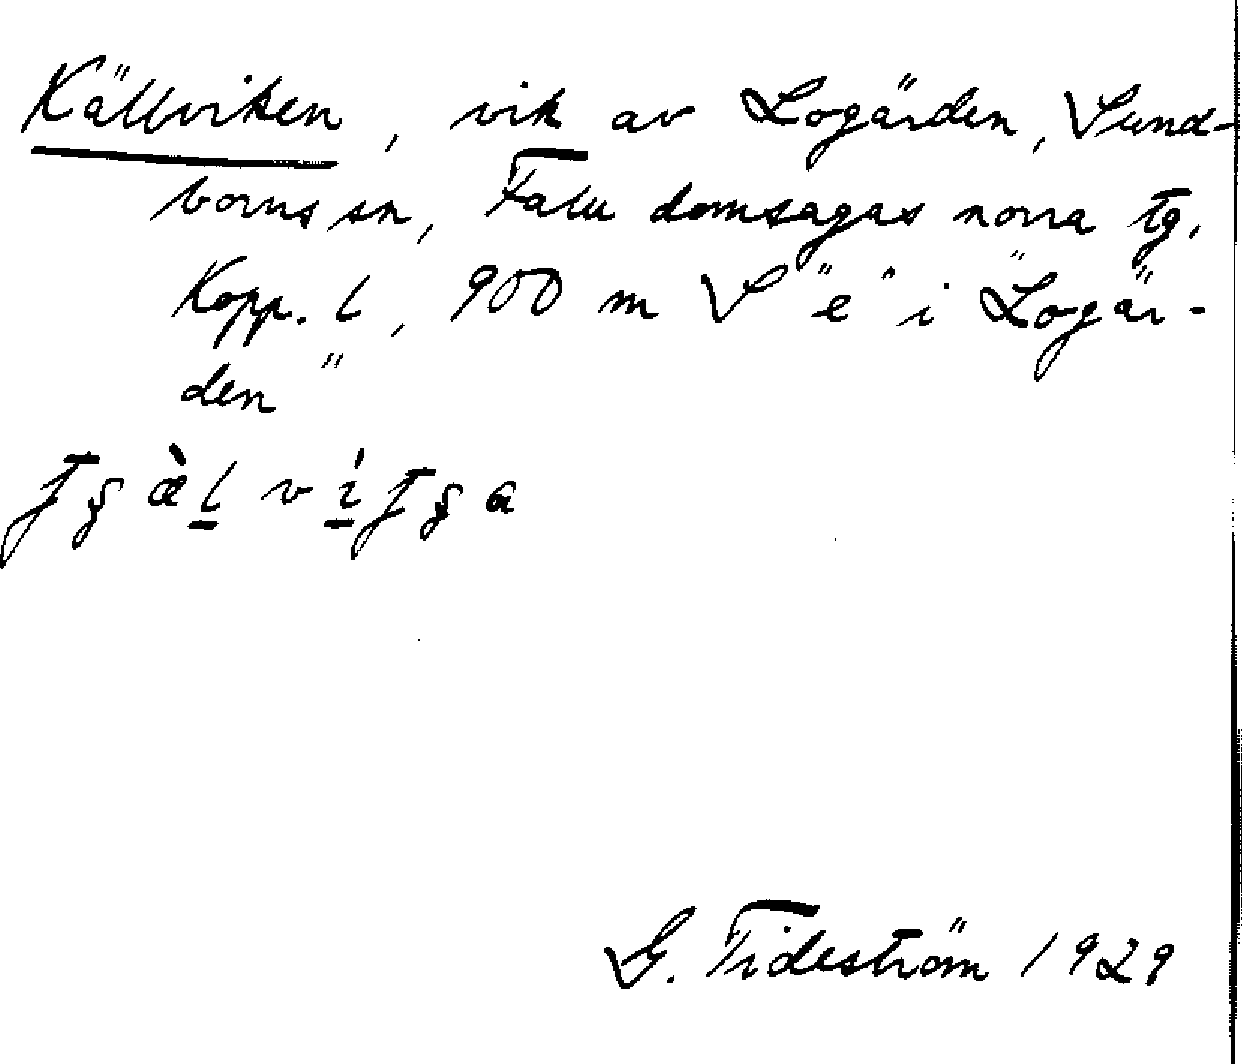 Källviken, vik av Logärden, Sund-
borns sn, Falu domsagas norra tg.
Kopp. l, 900 m S "e" i "Logär-
den"
G. Tideström 1929